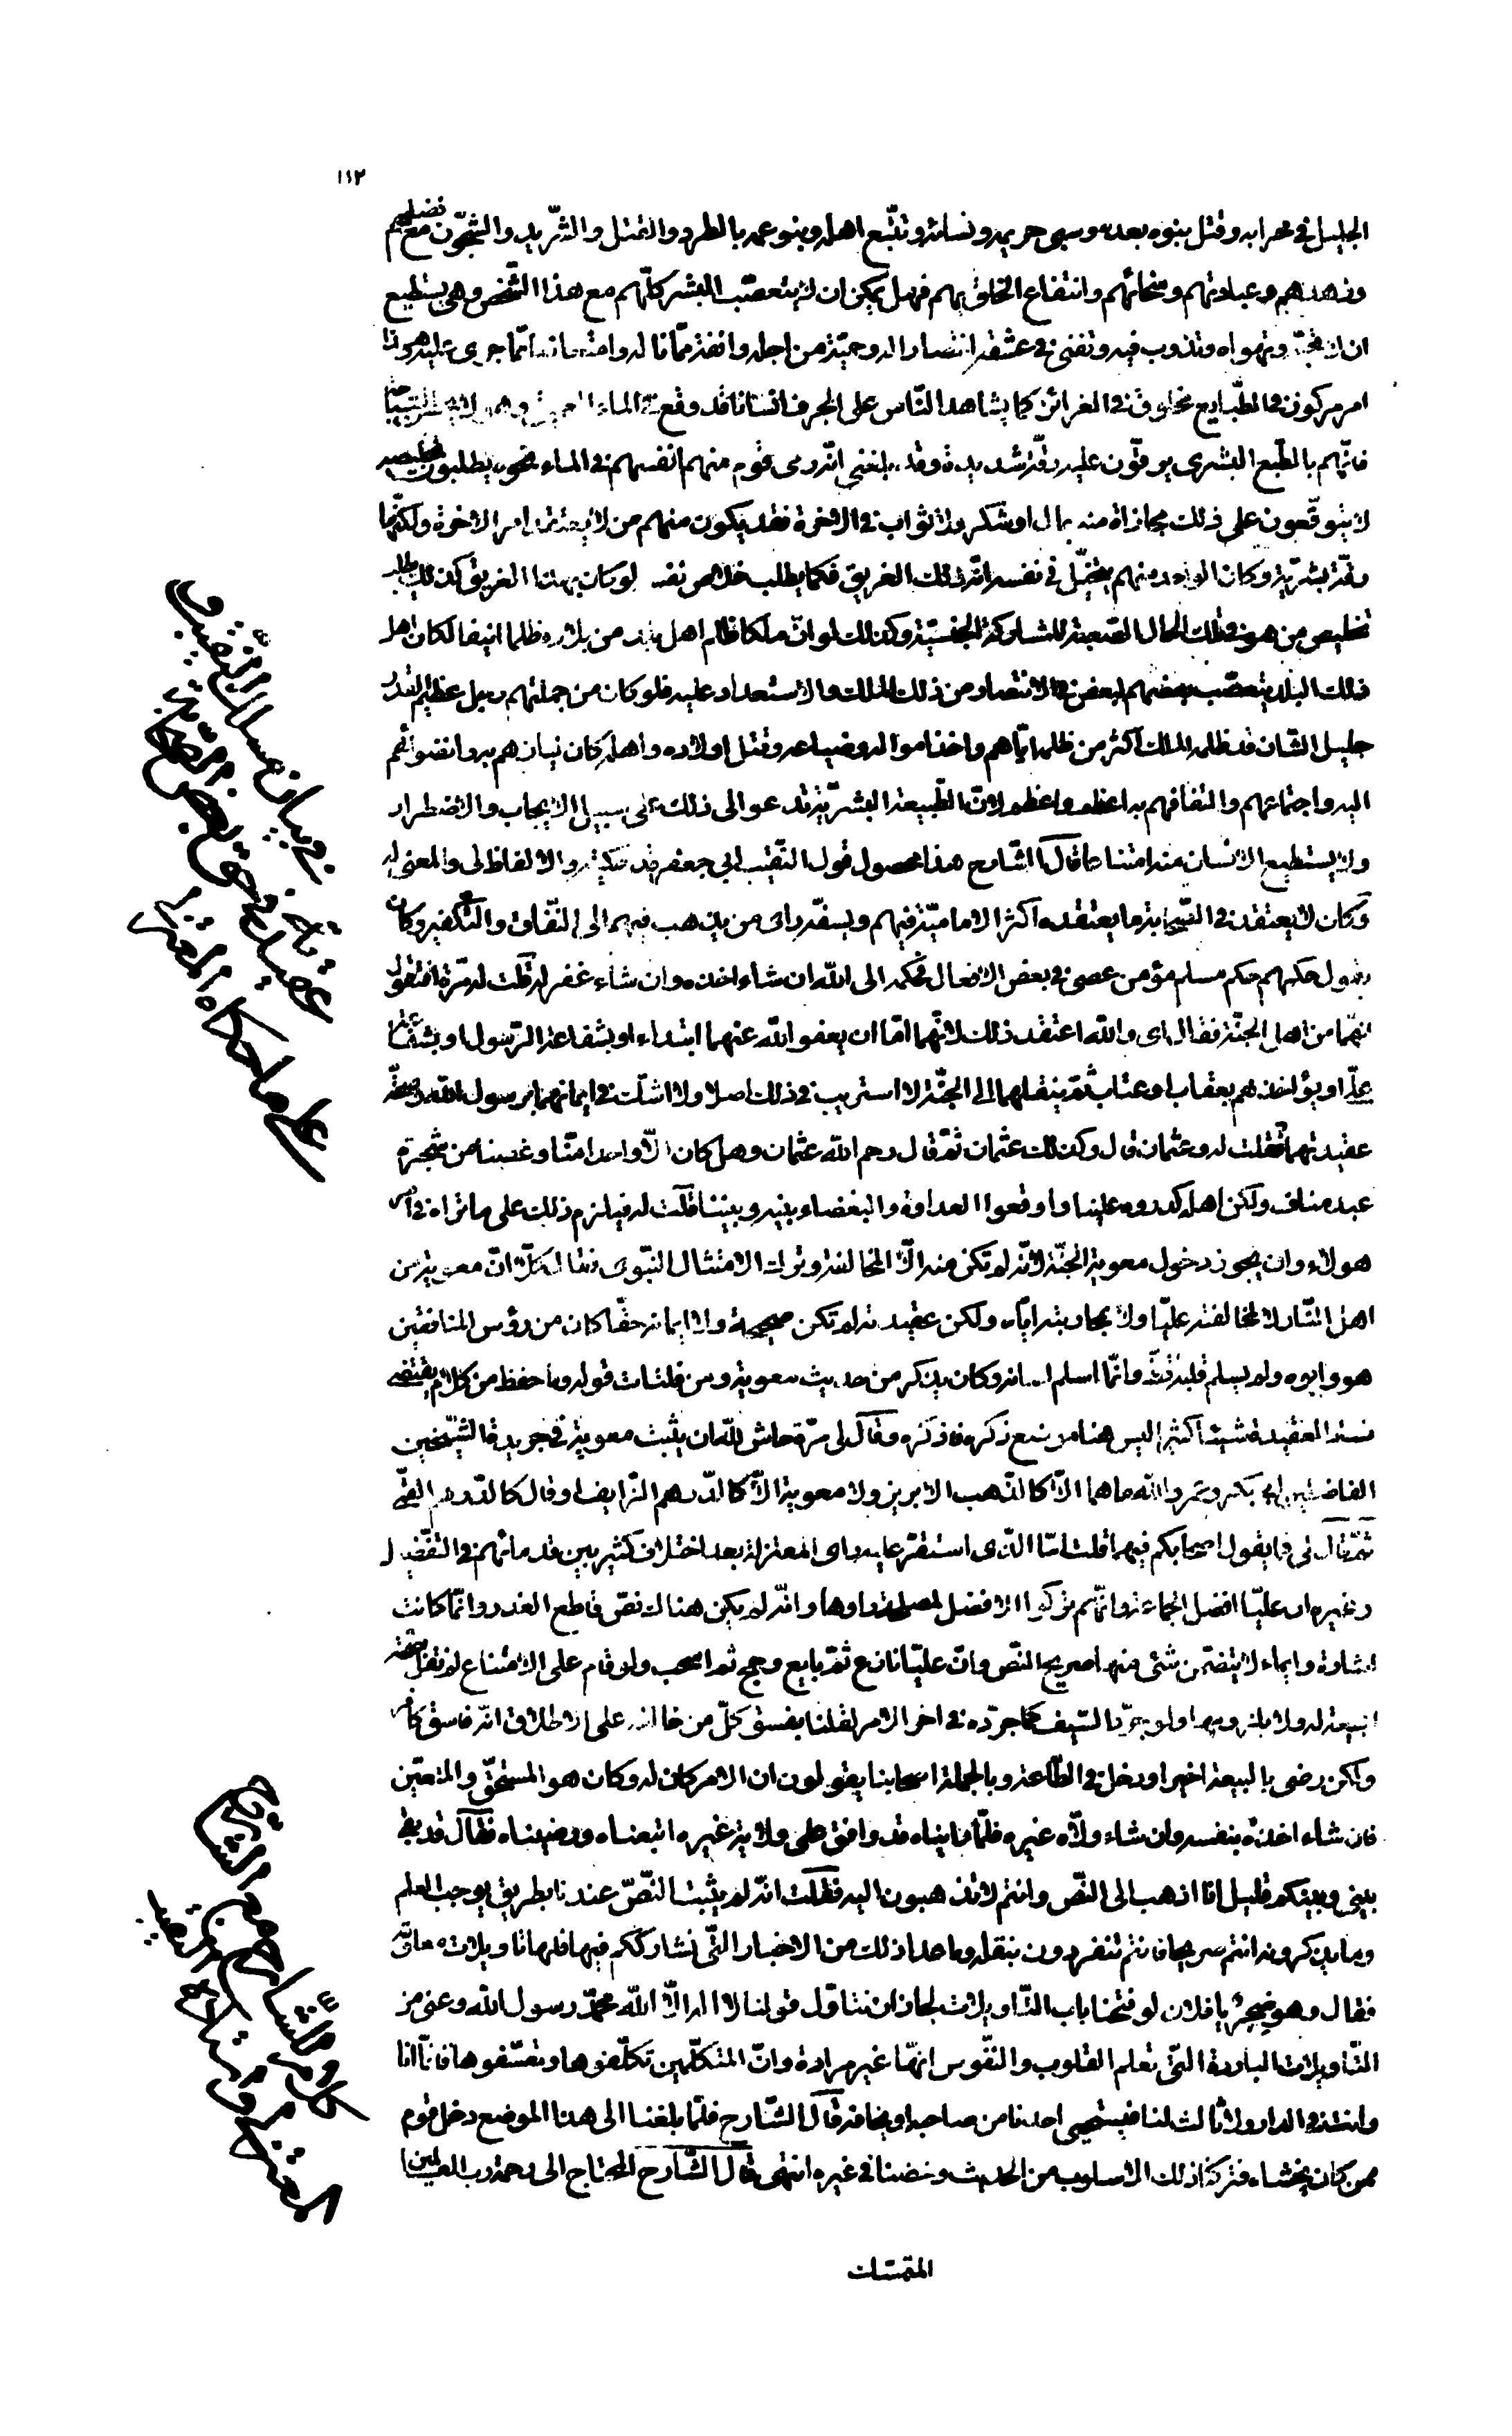 ١١٢
الجليل في محرابه وقتل بنوه بعده وسبي حريمه ونسائه وتتبّع اهله وبنو عمه بالطرد والقتل والتشريد والسجون مع فضلهم
وزهدهم وعبادتهم وسخائهم وانتفاع الخلق بهم فهل يمكن ان لا يتعصّب البشر كلّهم مع هذا الشخص وهل يستطيع
ان لا تحبّه وتهواه وتذوب فيه وتفنى في عشقه انتصارا له وحميّة من اجله وانفة ممّا ناله وامتعاضا ممّا جرى عليه وهذا
امر مركوز في الطبايع مخلوق في الغرائز كما يشاهد النّاس على الجرف انسانا قد وقع في الماء العميق وهو لا يحسن السّباحة
فانّهم بالطبع البشرى يرقّون عليه رقّة شديدة وقد يلقى قوم منهم انفسهم في الماء نحوه يطلبون تخليصه
لا يتوقّعون على ذلك مجازاة منه بمال او شكر ولا ثواب في الاخرة فقد يكون منهم من لا يعتقد امر الاخرة ولكنّها
رقّة بشريّة وكان الواحد منهم يتخيّل في نفسه انّه ذلك الغريق فكما يطلب خلاص نفسه لو كان هذا الغريق كذلك يطلب
تخليص من هو في تلك الحال الصّعبة للمشاركة الجنسيّة وكذلك لو انّ ملكا ظلم اهل بلد من بلاده ظلما عنيفا لكان اهل
ذلك البلد يتعصّب بعضهم لبعض في الانتصار من ذلك الملك والاستعداد عليه فلو كان من جملتهم رجل عظيم القدر
جليل الشان قد ظلمه الملك اكثر من ظلمه ايّاهم واخذ امواله وضياعه وقتل اولاده واهله كان لياذهم به وانضوائهم
اليه واجتماعهم والتفافهم به اعظم واعظم لانّ الطّبيعة البشريّة تدعو الى ذلك على سبيل الايجاب والاضطرار
ولا يستطيع الانسان منه امتناعا قال الشّارح هذا محصول قول النّقيب ابي جعفر قد حكيته والالفاظ لي والمعنى له
وكان لا يعتقد في الصّحابة ما يعتقده اكثر الاماميّة فيهم ويسفّه راى من يذهب فيهم الى النّفاق والتّكفير وكان
يقول حكمهم حكم مسلم مؤمن عصى في بعض الافعال فحكمه الى اللّه ان شاء اخذه وان شاء غفر له قلت له مرّة افتقول
انّهما من اهل الجنّة فقال اى واللّه اعتقد ذلك لانّهما امّا ان يعفو اللّه عنهما ابتداء او بشفاعة الرّسول او بشفاعة
علىّ او يؤاخذهم بعقاب او عتاب ثمّ ينقلهما الى الجنّة لا استريب في ذلك اصلا ولا اشكّ في ايمانهما برسول اللّه وصحّة
عقيدتهما فقلت له وعثمان قال وكذلك عثمان ثمّ قال رحم اللّه عثمان وهل كان الّا واحدا منّا وغصنا من شجرة
عبد مناف ولكن اهله كدروه علينا واوقعوا العداوة والبغضاء بينه وبيننا قلت له فيلزم ذلك على ما تراه في امر
هولاء وان يجوز دخول معوية الجنّة لانّه لم تكن منه الّا المخالفة وترك الامتثال النّبوى فقال كلّا انّ معوية من
اهل النّار لا لمخالفته عليّا ولا بمحاربته ايّاه ولكن عقيدته لم تكن صحيحة ولا ايمانه حقّا كان من رؤس المنافقين
هو وابوه ولم يسلم قلبه قطّ وانّما اسلم لسانه وكان يذكر من حديث معوية ومن فلتات قوله وما حفظ من كلام يقتضى
فساد العقيدة شيئا كثيرا ليس هنا موضع ذكره فاذكره وقال لى مرّة حاش للّه ان يثبت معوية في جريدة الشّيخين
الفاضلين ابى بكر وعمر واللّه ما هما الّا كالذّهب الابريز ولا معوية الّا كالدّرهم الزّايف او قال كالدّرهم القسّى
ثمّ قال لى فما يقول اصحابكم فيهما قلت امّا الّذى استقرّ عليه راى المعتزلة بعد اختلاف كثير بين قدمائهم في التفضيل
وغيره ان عليّا افضل الجماعة وانّهم تركوا الافضل لمصلحة راوها وانّه لم يكن هناك نصّ قاطع العذر وانّما كانت
اشارة وايماء لا يتضمّن شئ منها صريح النّص وانّ عليّا نازع ثمّ بايع وجمح ثمّ اصحب ولو قام على الامتناع لم نقل بصحّة
البيعة له ولا بلزومها ولو جرّد السّيف كما جرّده في اخر الامر لقلنا بفسق كلّ من خالفه على الاطلاق انّه فاسق كافر
ولكن رضى بالبيعة اخيرا ودخل في الطّاعة وبالجملة اصحابنا يقولون ان الامر كان له وكان هو المستحقّ والمتعيّن
فان شاء اخذه بنفسه وان شاء ولّاه غيره فلمّا رايناه قد وافق على ولاية غيره اتبعناه ورضيناه فقال قد بقى
بينى وبينكم قليل انا اذهب الى النّص وانتم لا تذهبون اليه فقلت انّه لم يثبت النّصّ عندنا بطريق يوجب العلم
وما يذكرونه انتم صريحا فانتم تنفردون بنقله وما عدا ذلك من الاخبار التّى نشارككم فيها فلها تاويلات معلومة
فقال وهو ضجر يا فلان لو فتحنا باب التّاويلات لجاز ان نتاوّل قولنا لا اله الّا اللّه محمّد رسول اللّه دعنى من
التّاويلات الباردة التى تعلم القلوب والنّفوس انّها غير مرادة وانّ المتكلّمين تكلّفوها وتعسّفوها فانّا انا
وانت في الدار ولا ثالث لنا فيستحيى احدنا من صاحبه او يخافه قال الشّارح فلمّا بلغنا الى هذا الموضع دخل قوم
ممن كان يخشاه فتركنا ذلك الاسلوب من الحديث وخضنا في غيره انتهى قال الشّارح المحتاج الى رحمة رب العالمين
المقتنات